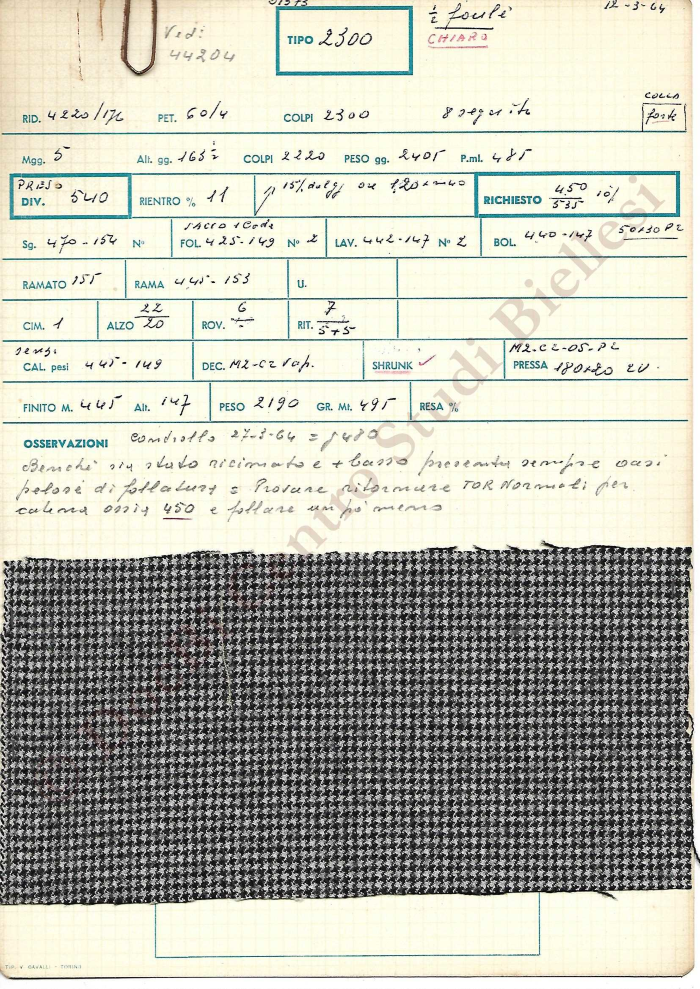 12-3-64
½ foulé
Vedi: TIPO 2300 CHIARO
44204
COLLA
RID. 4220/176 PET. 60/4 COLPI 2300 8 seguito forte
Mgg. 5 Alt. gg. 163½ COLPI 2220 PESO gg. 2405 P.ml. 485
PRESO
DIV. 540 RIENTRO % 11 RICHIESTO 450/535
SACCO 1 Coda
Sg. 470-154 N° FOL. 425-149 N° 2 LAV. 442-147 N° 2 BOL. 440-147 50+30 P2
RAMATO 155 RAMA 445-153 U.
CIM. 1 ALZO 22/20 ROV. 6 RIT. 7/5+5
sensi M2-C2-05-P2
CAL. pesi 445-149 DEC. M2-C2 vap. SHRUNK ✓ PRESSA 180+20 2U.
FINITO M. 445 Alt. 147 PESO 2190 GR. Mt. 495 RESA %
OSSERVAZIONI Controllo 27-3-64 = g 480
Benché sia stato ricimato e + basso presenta sempre casi
pelosi di follatura = Provare ritornare TOR Normali per
catena ossia 450 e follare un pò meno
© DocBi Centro Studi Biellesi
TIP. V. CAVALLI - TORINO